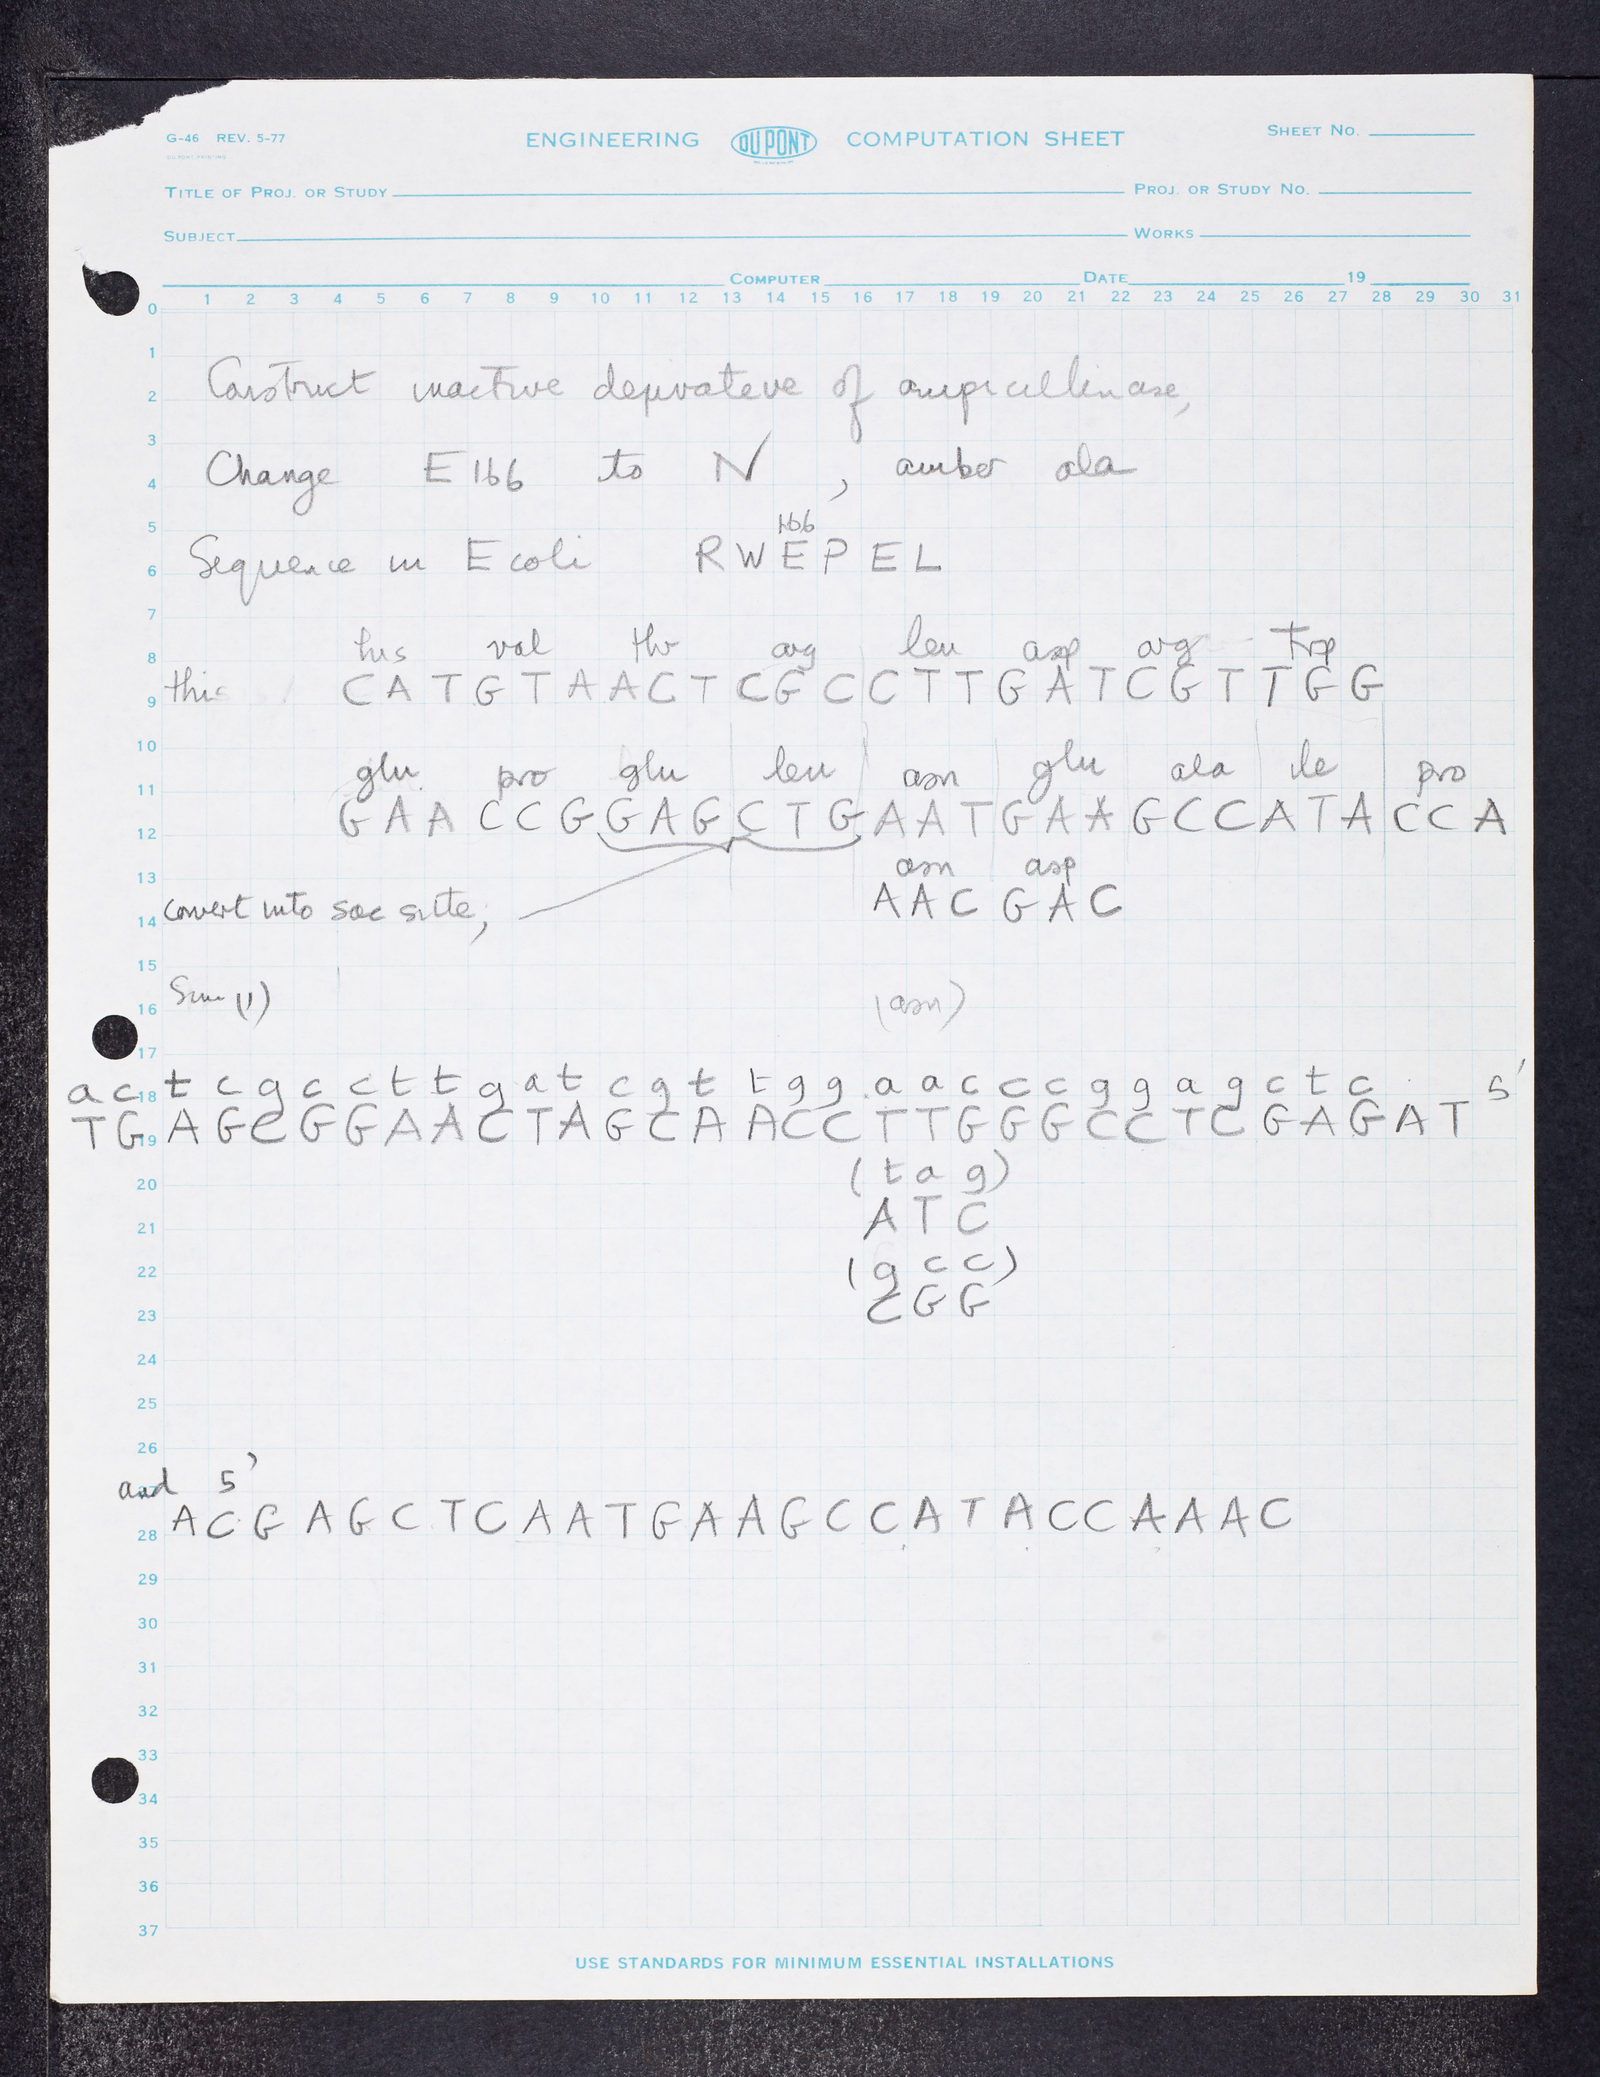 G-46 REV. 5-77
DU PONT PRINTING
ENGINEERING DU PONT COMPUTATION SHEET
SHEET NO.
TITLE OF PROJ. OR STUDY
PROJ. OR STUDY NO.
SUBJECT
WORKS
COMPUTER
DATE
19
1 2 3 4 5 6 7 8 9 10 11 12 13 14 15 16 17 18 19 20 21 22 23 24 25 26 27 28 29 30 31
0
1
Construct inactive derivateve of ampicillinase,
2
3
Change E166 to N , amber ala
4
5
166
Sequence in E coli RWEPEL
6
7
his val thr arg leu asp arg Trp
8
this CATGTAACTCGCCTTGATCGTTGG
9
10
glu pro glu leu asn glu ala ile pro
11
GAACCGGAGCTGAATGAAGCCATACCA
12
asn asp
13
AAC GAC
convert into sac site,
14
15
(1)
(asn)
16
17
actcgccttgatcgttggaacccggagctc 5'
18
TGAGCGGAACTAGCAACCTTGGGCCTCGAGAT
19
(tag)
20
ATC
21
(gcc)
22
CGG
23
24
25
26
and 5'
27
ACGAGCTCAATGAAGCCATACCAAAC
28
29
30
31
32
33
34
35
36
37
USE STANDARDS FOR MINIMUM ESSENTIAL INSTALLATIONS